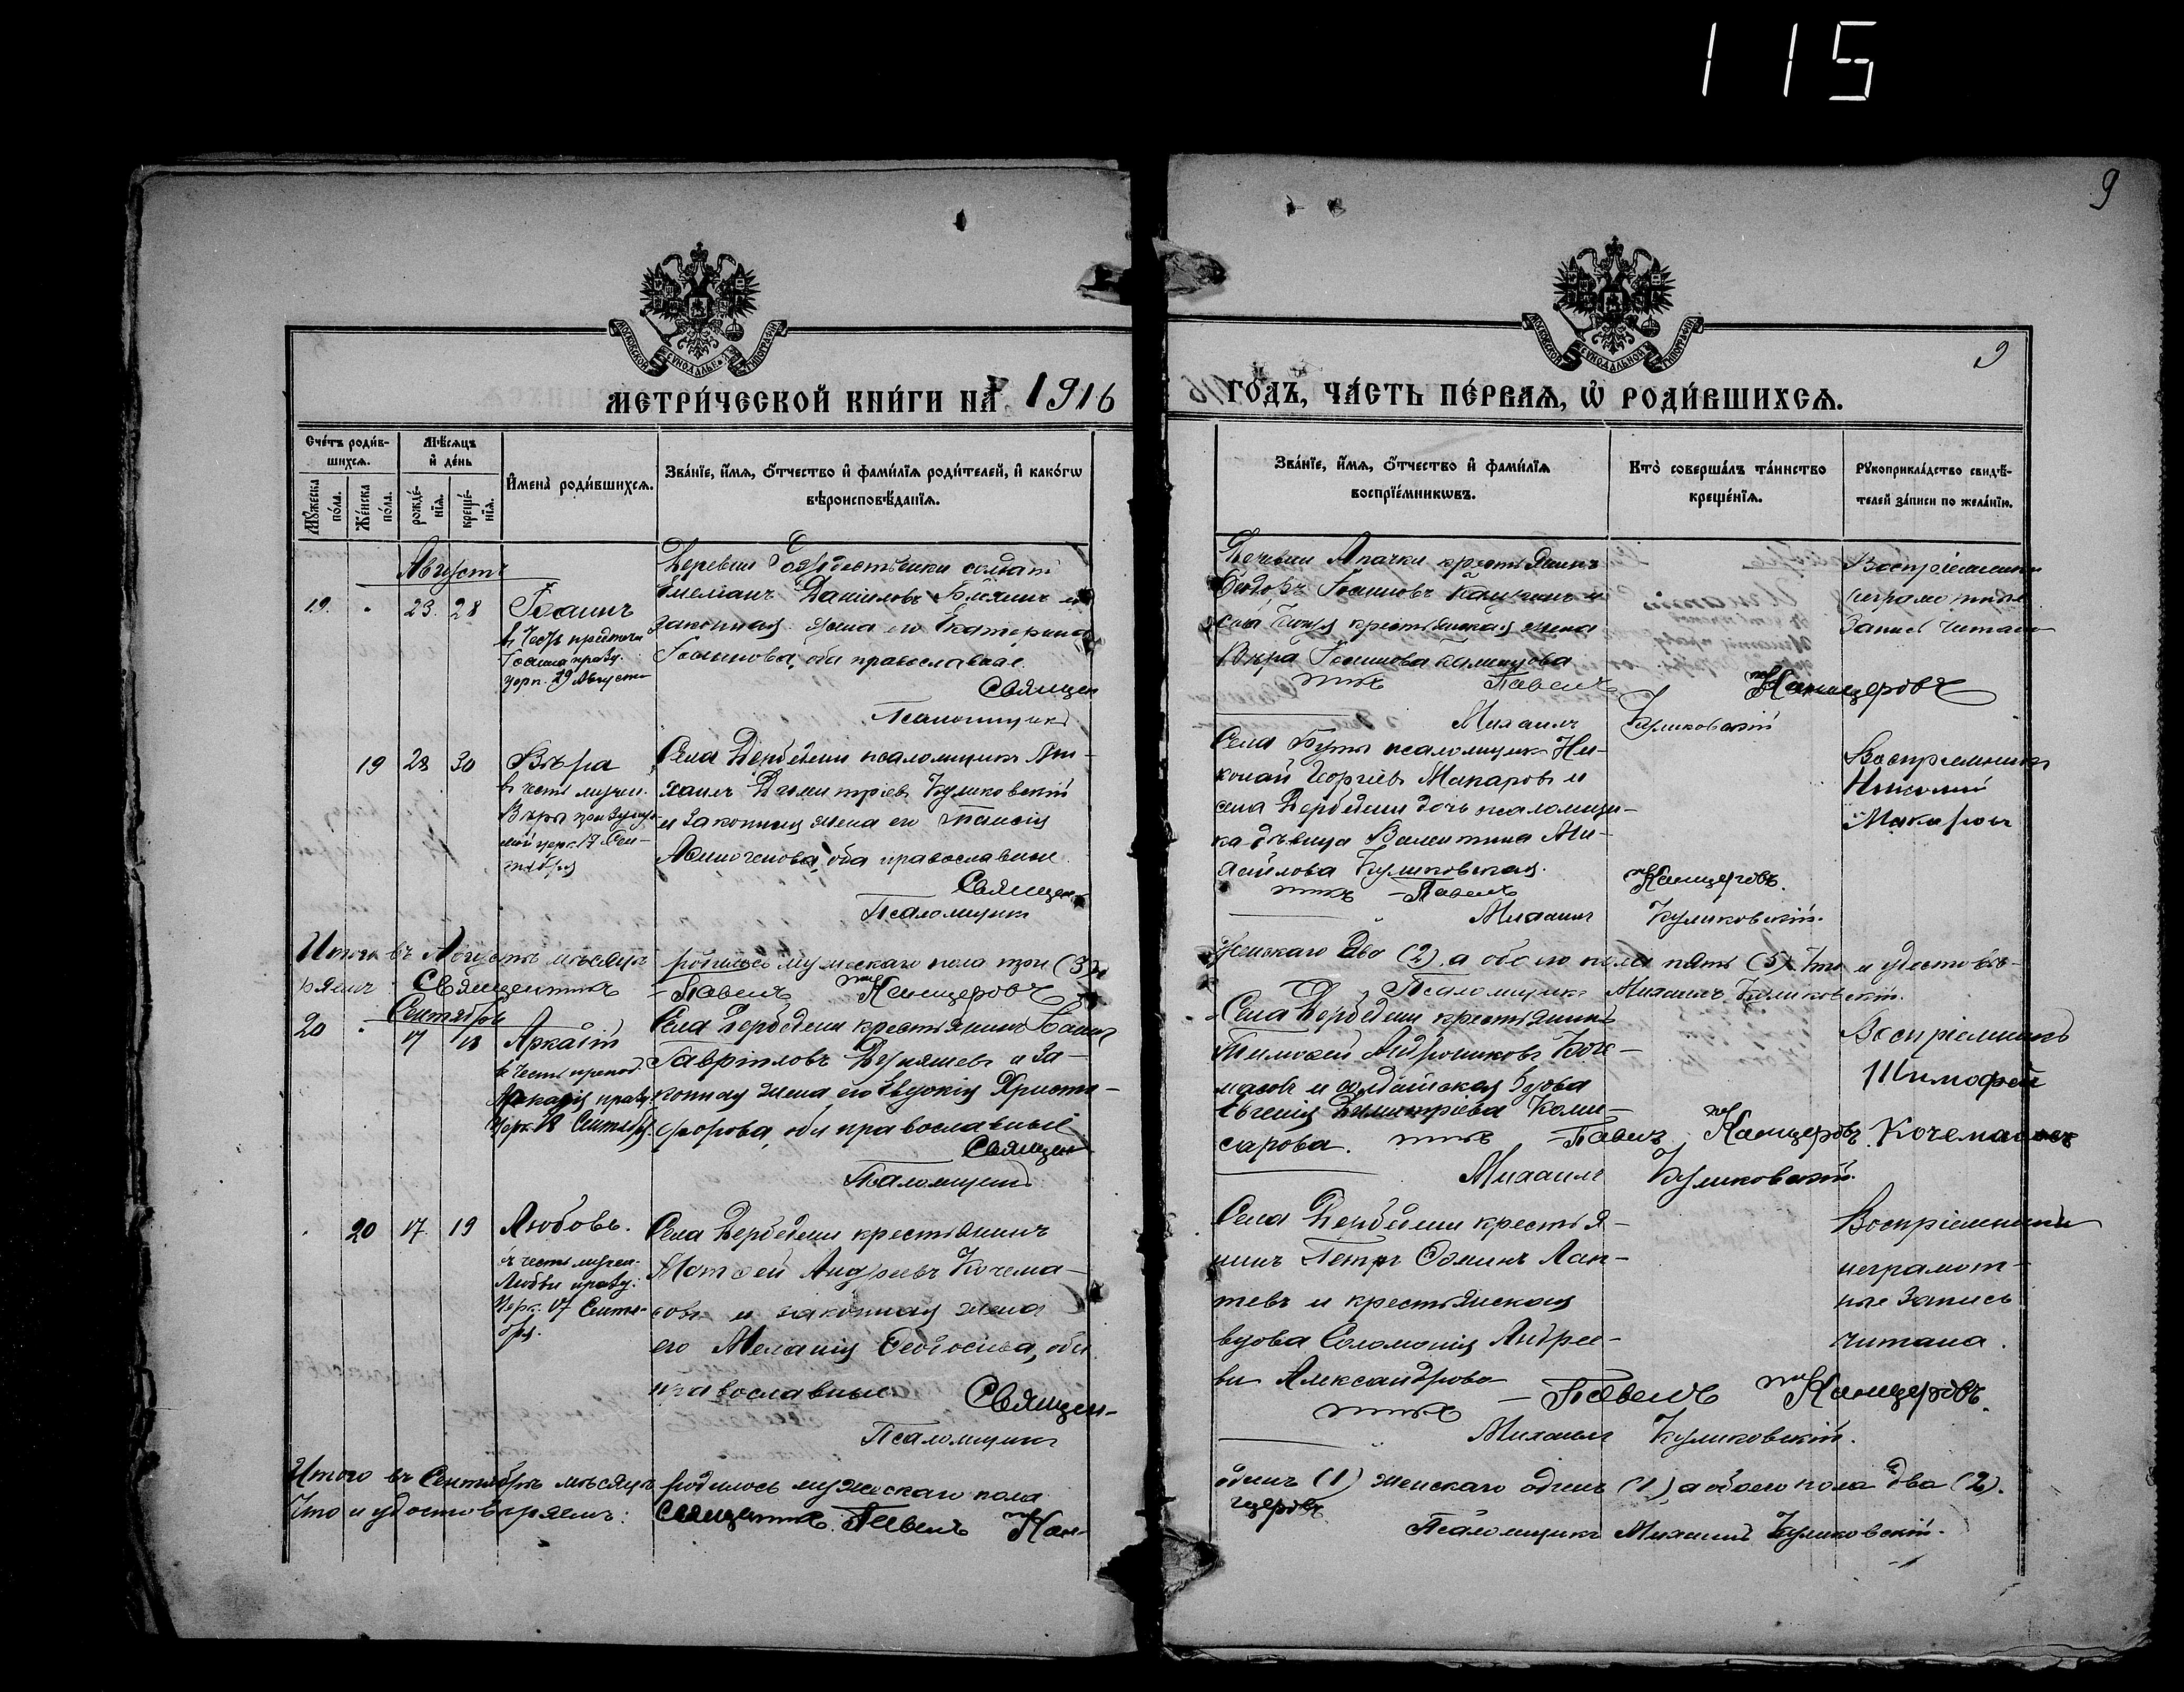 115
9
9
МОСКОВСКОЙ СѴНОДАЛЬНОЙ ТИПОГРАФІИ
МОСКОВСКОЙ СѴНОДАЛЬНОЙ ТИПОГРАФІИ
МЕТРИ́ЧЕСКОЙ КНИ́ГИ НА 1916
ГОДЪ, ЧА́СТЬ ПЕ́РВАѦ, Ѡ҆ РОДИ́ВШИХСѦ.
Сче́тъ роди́в-
шихсѧ.
Мꙋ́жеска по́ла.
Же́нска по́ла.
Мѣ́сѧцъ
и҆ де́нь
рожде́-
нїѧ.
креще́-
нїѧ.
И҆мена̀ роди́вшихсѧ.
Зва́нїе, и҆́мѧ, ѻ҆́тчество и҆ фами́лїѧ роди́телей, и҆ како́гѡ
вѣроисповѣ́данїѧ.
Зва́нїе, и҆́мѧ, ѻ҆́тчество и҆ фами́лїѧ
воспрїе́мникѡвъ.
Кто̀ соверша́лъ та́инство
креще́нїѧ.
Рꙋкоприкла́дство свидѣ́-
телей за́писи по жела́нїю.
Августъ
19. " 23. 28
Іоаннъ
въ честь предтечи
Іоанна празд.
церк. 29 Августа
Деревни солдатъ
Емеліанъ Даніиловъ и
законная жена его Екатерина
Іоаннова, оба православные.
Священ
Псаломщикъ
крестьянинъ
Ѳеодоръ Іоанновъ и
села крестьянская жена
Вѣра Іоаннова
никъ Павелъ Канцеровъ
Михаилъ Куликовскій
Воспріемники
неграмотные
Запись читана
19 28 30
Вѣра
въ честь мучен.
Вѣры празднуе-
мой церк. 17 Сен-
тября
Села Дербедени псаломщикъ Ми-
хаилъ Димитріевъ Куликовскій
и законная жена его Таисія
оба православные.
Священ
Псаломщикъ
Села псаломщикъ Ни-
колай Георгіевъ Макаровъ и
села Дербедени дочь псаломщи-
ка дѣвица Валентина Ми-
хаилова Куликовская.
никъ Павелъ Канцеровъ.
Михаилъ Куликовскій.
Воспріемникъ
Николай
Макаровъ
Итого въ Августѣ мѣсяцѣ родилось мужескаго пола три (3) и
женскаго два (2), а обоего пола пять (5). Что и удостовѣ-
ряемъ: Священникъ Павелъ Канцеровъ
Псаломщикъ Михаилъ Куликовскій.
Сентябрь
20 " 17 18
Аркадій
въ честь препод.
Аркадія празд.
церк. Сентября
Села Дербедени крестьянинъ
Гавріиловъ и за-
конная жена его Евдокія Христо-
форова, оба православные
Священ
Псаломщикъ
Села Дербедени крестьянинъ
Тимоѳей Андрониковъ Коче-
масовъ и солдатская вдова
Евгенія Димитріева Коми-
сарова. никъ Павелъ Канцеровъ.
Михаилъ Куликовскій.
Воспріемникъ
Тимофей
Кочемасовъ
20 17. 19
Любовь.
въ честь мучен.
Любви празд.
Церк. 17 Сентя-
бря.
Села Дербедени крестьянинъ
Матѳей Андреевъ Кочема-
совъ и законная жена
его Меланія Ѳеодосіева, оба
православные Священ-
Псаломщикъ
Села Дербедени крестья-
нинъ Петръ Ѳоминъ Лап-
тевъ и крестьянская
вдова Соломонія Андрее-
ва Александрова
никъ Павелъ Канцеровъ.
Михаилъ Куликовскій.
Воспріемники
неграмот-
ные Запись
читана.
Итого въ Сентябрѣ мѣсяцѣ родилось мужескаго пола
одинъ (1) женскаго одинъ (1), а обоего пола два (2).
Что и удостовѣряемъ: Священникъ Павелъ Кан-
церовъ
Псаломщикъ Михаилъ Куликовскій.